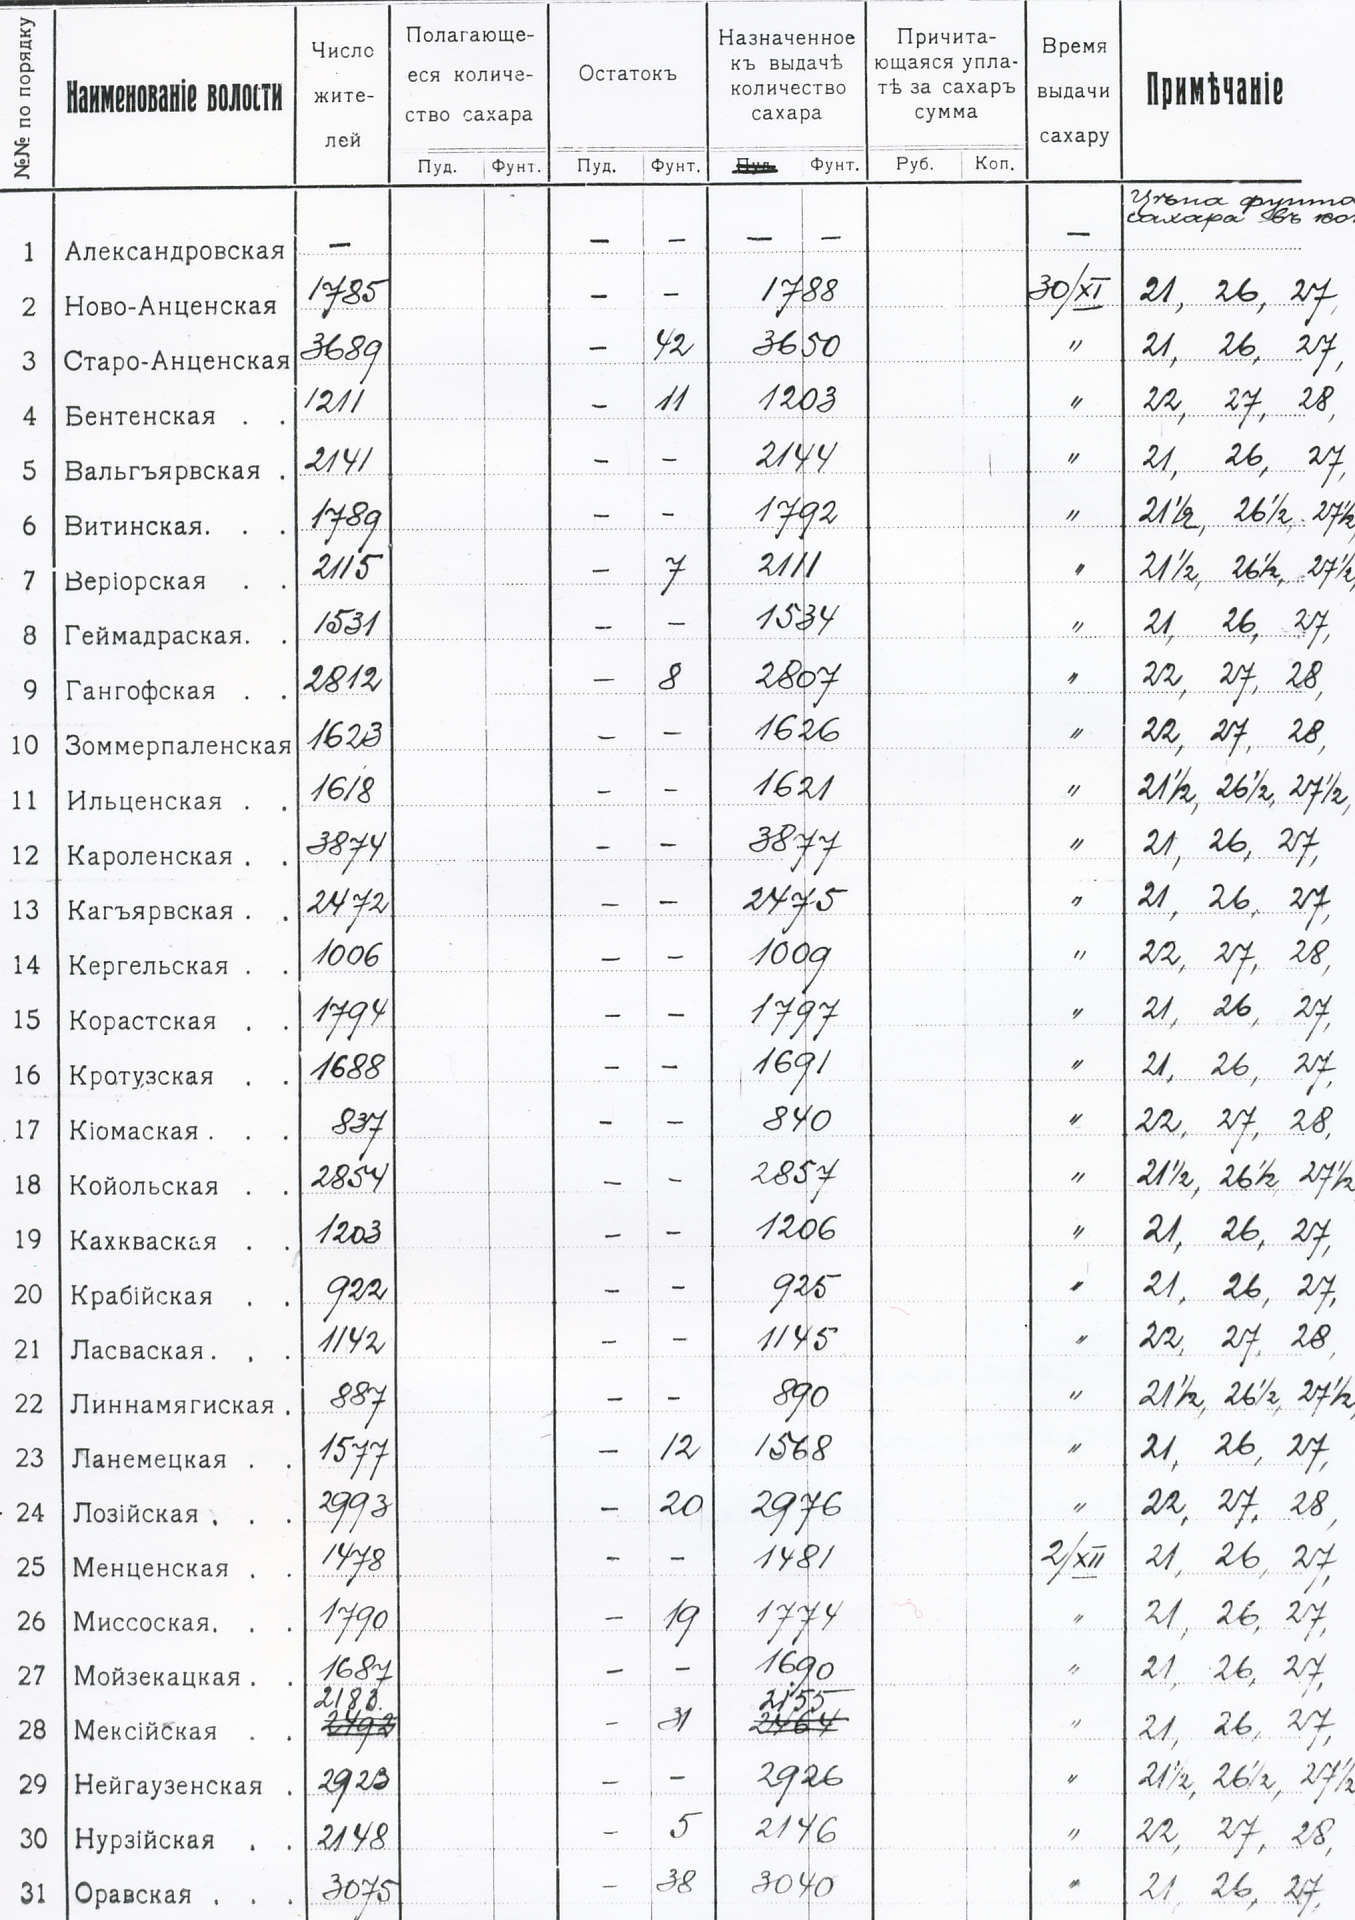 №№ по порядку
Наименованіе волости
Число жите-лей
Полагающе-
еся количе-
ство сахара
Остатокъ
Назначенное
къ выдачѣ
количество
сахара
Причита-
ющаяся упла-
тѣ за сахаръ
сумма
Время
выдачи
сахару
Примѣчаніе
Пуд. Фунт. Пуд. Фунт. Пуд. Фунт. Руб. Коп.
Цѣна фунта
сахара въ коп
1 Александровская — — — — — —
2 Ново-Анценская 1785 — — 1788 30/XI 21, 26, 27,
3 Старо-Анценская 3689 — 42 3650 " 21, 26, 27,
4 Бентенская . . 1211 — 11 1203 " 22, 27, 28,
5 Вальгъярвская . 2141 — — 2144 " 21, 26, 27,
6 Витинская. . . 1789 — — 1792 " 21½, 26½, 27½,
7 Веріорская . . 2115 — 7 2111 " 21½, 26½, 27½,
8 Геймадраская. . 1531 — — 1534 " 21, 26, 27,
9 Гангофская . . 2812 — 8 2807 " 22, 27, 28,
10 Зоммерпаленская 1623 — — 1626 " 22, 27, 28,
11 Ильценская . . 1618 — — 1621 " 21½, 26½, 27½,
12 Кароленская . . 3874 — — 3877 " 21, 26, 27,
13 Кагъярвская . . 2472 — — 2475 " 21, 26, 27,
14 Кергельская . . 1006 — — 1009 " 22, 27, 28,
15 Корастская . . 1794 — — 1797 " 21, 26, 27,
16 Кротузская . . 1688 — — 1691 " 21, 26, 27,
17 Кіомаская . . . 837 — — 840 " 22, 27, 28,
18 Койольская . . 2854 — — 2857 " 21½, 26½, 27½,
19 Кахкваская . . 1203 — — 1206 " 21, 26, 27,
20 Крабійская . . 922 — — 925 " 21, 26, 27,
21 Ласваская . . . 1142 — — 1145 " 22, 27, 28,
22 Линнамягиская . 887 — — 890 " 21½, 26½, 27½,
23 Ланемецкая . . 1577 — 12 1568 " 21, 26, 27,
24 Лозійская . . . 2993 — 20 2976 " 22, 27, 28,
25 Менценская . . 1478 — — 1481 2/XII 21, 26, 27,
26 Миссоская. . . 1790 — 19 1774 " 21, 26, 27,
27 Мойзекацкая . . 1687 — — 1690 " 21, 26, 27,
2183. 2155
28 Мексійская . . 2492 — 31 2464 " 21, 26, 27,
29 Нейгаузенская . 2923 — — 2926 " 21½, 26½, 27½
30 Нурзійская . . 2148 — 5 2146 " 22, 27, 28,
31 Оравская . . . 3075 — 38 3040 " 21, 26, 27,